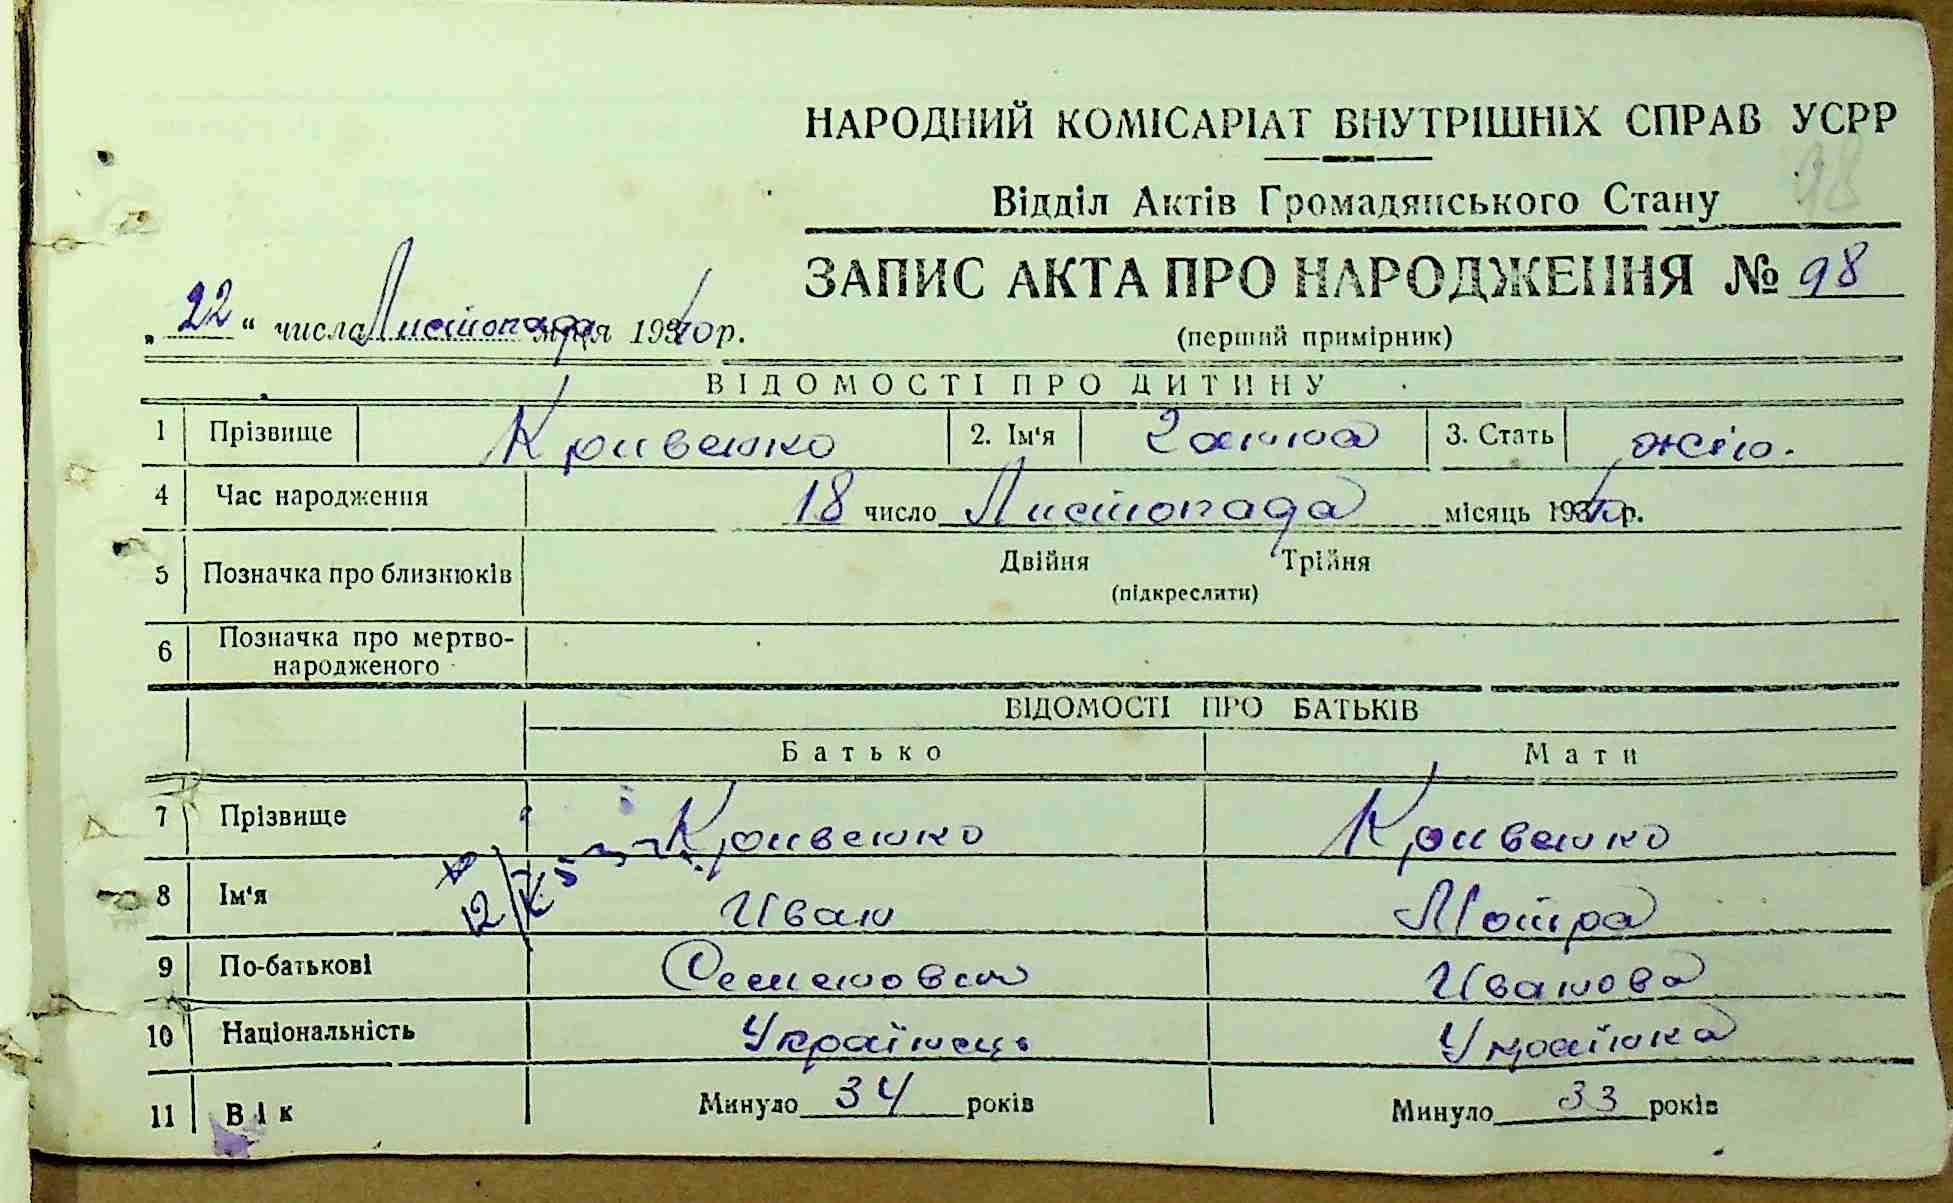 НАРОДНИЙ КОМІСАРІАТ ВНУТРІШНІХ СПРАВ УСРР
98
Відділ Актів Громадянського Стану
ЗАПИС АКТА ПРО НАРОДЖЕННЯ № 98
„ 22 “ числа Листопада м-ця 1940 р.
(перший примірник)
ВІДОМОСТІ ПРО ДИТИНУ
1 Прізвище Кривенко 2. Ім'я Ганна 3. Стать жін.
4 Час народження 18 число Листопада місяць 1940 р.
5 Позначка про близнюків Двійня Трійня
(підкреслити)
6 Позначка про мертво-
народженого
ВІДОМОСТІ ПРО БАТЬКІВ
Батько Мати
7 Прізвище Кривенко Кривенко
8 Ім'я Иван Мотра
9 По-батькові Семенович Иванова
10 Національність Українець Українка
11 Вік Минуло 34 років Минуло 33 років
12